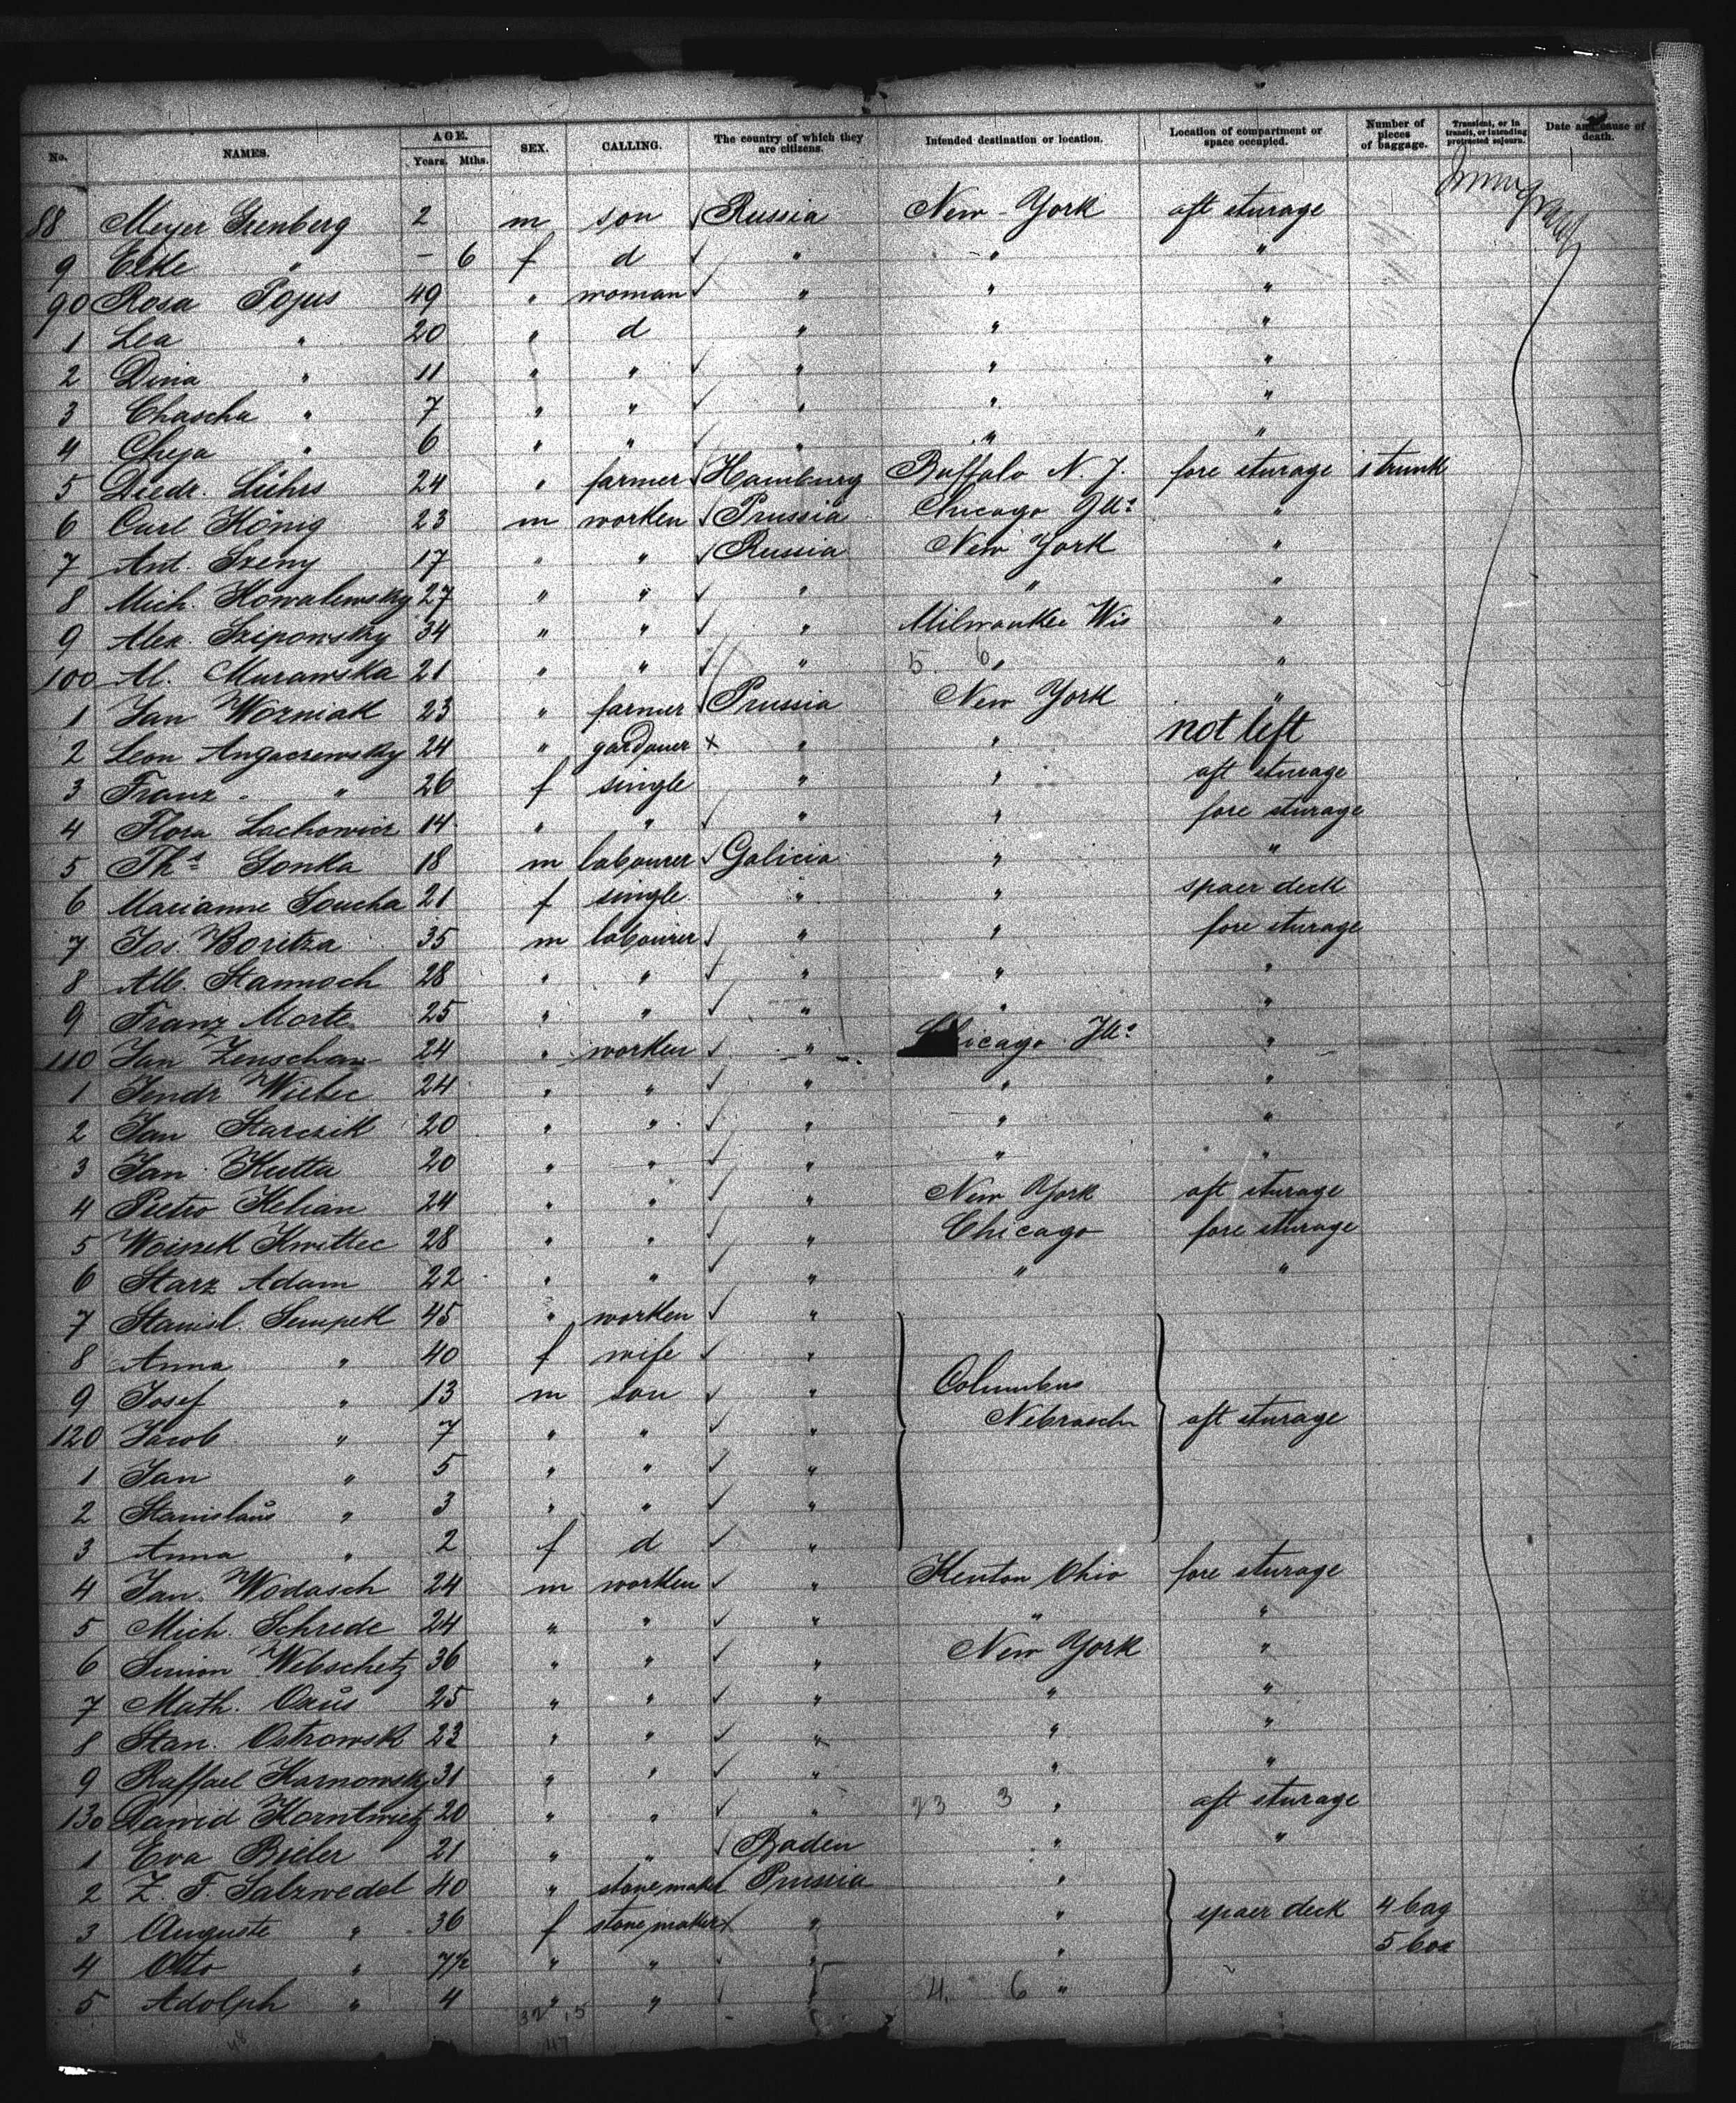 No. NAMES. AGE. Years. Mths. SEX. CALLING. The country of which they are citizens. Intended destination or location. Location of compartment or space occupied. Number of pieces of baggage. Transient, or in transit, or intending protracted sojourn. Date and cause of death.
88 Meyer Grenberg 2 m son Russia New-York aft sturage
9 Elke " – 6 f d " " "
90 Rosa Pojus 49 " woman " " "
1 Lea " 20 " d " " "
2 Dina " 11 " " " " "
3 Chascha " 7 " " " " "
4 Cheja " 6 " " " " "
5 Diedr. Lührs 24 " farmer Hamburg Buffalo N. J. fore sturage 1 trunk
6 Carl König 23 m worken Prussia Chicago Ills "
7 Ant. Szeny 17 " " Russia New York "
8 Mich. Kowalewsky 27 " " " " "
9 Alex. Szipowsky 34 " " " Milwaukee Wis "
100 Al. Murawska 21 " " " 5. 6 " "
1 Jan Wozniak 23 " farmer Prussia New York "
2 Leon Angacrewsky 24 " gardauer x " " not left
3 Franz " 26 f single " " aft sturage
4 Flora Lachowicz 14 " " " " fore sturage
5 Ths Gonka 18 m labourer Galicia " "
6 Marianne Soucha 21 f single " " spaer deck
7 Jos. Boritza 35 m labourer " " fore sturage
8 Alb. Stannoch 28 " " " " "
9 Franz Morte 25 " " " " "
110 Jan Zenschan 24 " worken " Chicago Ills "
1 Jendr Wielec 24 " " " " "
2 Jan Starczik 20 " " " " "
3 Jan Kutta 20 " " " " "
4 Pietro Kelian 24 " " " New York aft sturage
5 Woiszek Kwittec 28 " " " Chicago fore sturage
6 Starz Adam 22 " " " " "
7 Stanisl. Sempek 45 " worken "
8 Anna " 40 f wife "
9 Josef " 13 m son " Columbus
120 Jacob " 7 " " " Nebrasch aft sturage
1 Jan " 5 " " "
2 Stanislaus " 3 " " "
3 Anna " 2 f d "
4 Jan. Wodasch 24 m worken " Kenton Ohio fore sturage
5 Mich. Schrede 24 " " " " "
6 Simon Webschetz 36 " " " New York "
7 Math. Oxüs 25 " " " " "
8 Stan. Ostrowsk 23 " " " " "
9 Raffael Karnowsky 31 " " " " "
130 Dawid Korntwetz 20 " " " 23 3 " aft sturage
1 Eva Bieler 21 " " Baden " "
2 Z. F. Salzwedel 40 " stovemaker Prussia "
3 Auguste " 36 f stovemaker x " " spaer deck 4 bag
4 Otto " 7½ " " " " 5 box
5 Adolph " 4 " " 4. 6 "
32 15
47
48